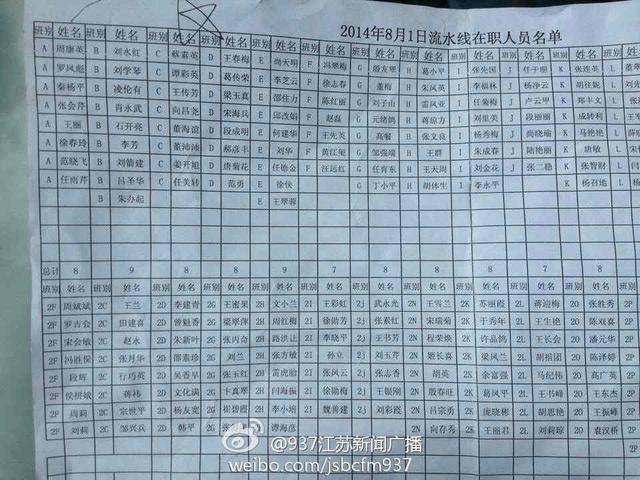 2014年8月1日流水线在职人员名单
班别 姓名 班别 姓名 班别 姓名 班别 姓名 班别 姓名 班别 姓名 班别 姓名 班别 姓名 班别 姓名 班别 姓名 班别 姓名 班别
A 周康英 B 刘永红 C 蔡素英 D 王春梅 E 尚天明 F 冯翠梅 G 殷友翠 H 葛小平 I 张先国 J 任于朋 K 张连英 L
A 罗凤彪 B 刘学琴 C 谭彩英 D 葛传荣 E 李芝云 F 徐志春 G 董梅 H 朱凤英 I 李福林 J 杨净云 K 胡往妮 L
A 秦杨平 B 凌伦有 C 王传芳 D 梁玉真 E 邵住力 F 陈红丽 G 刘子山 H 雷凤亚 I 任菊梅 J 卢云甲 K 郑丰文 L
A 张会芹 B 肖永武 C 向昌尧 D 宋海兵 E 邱改娟 F 赵磊 G 元绪鸽 H 蒋琼方 I 刘里美 J 段丽丽 K 成转利 L
A 王丽 B 石开亮 C 董海谊 D 段成明 E 何建华 F 王先英 G 高餐 H 张文良 I 杨秀梅 J 尚晓瑜 K 马艳艳 L
A 徐春玲 B 李芳 C 董沛沛 D 郝彦丰 E 刘华 F 黄江玺 G 邹强端 H 王群 I 朱成春 J 陆艳艳 K 唐敏 L
A 范晓飞 B 刘箭建 C 姜开旭 D 唐菊花 E 任德金 F 汪远红 G 任育东 H 王大周 I 刘金花 J 张二稳 K 张智财 L
A 任雨芹 B 吕圣华 C 任美转 D 范勇 E 徐侯 G 丁小平 H 胡体生 I 李永平 K 杨召地 L
B 朱办起 E 王翠蓉
总计 8 9 8 8 9 7 8 8 8 7 8
班别 姓名 班别 姓名 班别 姓名 班别 姓名 班别 姓名 班别 姓名 班别 姓名 班别 姓名 班别 姓名 班别 姓名 班别 姓名 班别
2F 周斌斌 2C 王兰 2D 李建青 2G 王蜜果 2H 文小兰 2I 王彩虹 2j 武永光 2N 王雪兰 2K 苏丽霞 2L 蒋迎梅 2O 张胜秀 2P
2F 罗吉会 2C 田建喜 2D 曾魁香 2G 梁翠萍 2H 周红梅 2I 徐勋芳 2j 张素红 2N 宋瑞菊 2K 于秀年 2L 王生艳 2O 陈双喜 2P
2F 宋会敏 2C 赵永 2D 朱新叶 2G 张丙奇 2H 路洪让 2I 李晓平 2j 王书芳 2N 程荣焕 2K 许晶鸽 2L 王长全 2O 潘元华 2P
2F 冯胜保 2C 张月华 2D 邵素珍 2G 刘兰 2H 张方敏 2I 孙立 2j 刘玉芹 2N 姬长喜 2K 梁凤兰 2L 胡祖团 2O 陈泽婷 2P
2F 段辉 2C 行巧英 2D 吴香早 2G 张玉红 2H 雷虎胎 2I 张凤云 2j 张志香 2N 胡英 2K 余富强 2L 马纪伟 2O 高广英 2P
2F 侯拼斌 2C 蒋祎 2D 文化满 2G 卞真翠 2H 闫海振 2I 徐勋梅 2j 王银刚 2N 殷春旺 2K 葛凤平 2L 王书峰 2O 王东东 2P
2F 周莉 2C 宗世平 2D 杨友宽 2G 崔碧霞 2H 李小培 2I 魏善建 2j 刘彩霞 2N 吕宗勇 2K 庞晓彬 2L 胡思艳 2O 王振峰 2P
2F 刘莉 2C 邹兴兵 2D 韩平 2G 2H 谭海彦 2N 向存秀 2K 王丽君 2L 刘莉琼 2O 袁汉桥 2P
@937江苏新闻广播
weibo.com/jsbcfm937